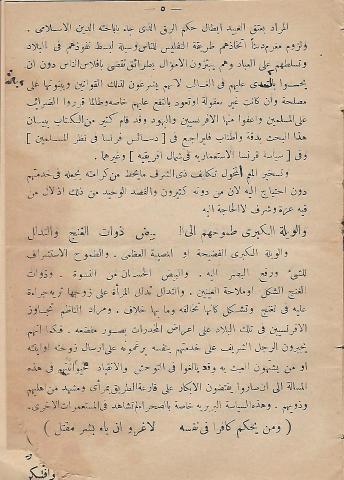 — ٥ —
المراد بعتق العبيد ابطال حكم الرق الذي جاء باباحته الدين الاسلامي .
ولزوم مغرم دستاً اتخاذهم طريقة التفليس للناس وسيلة لبسط نفوذهم في البلاد
وتسلطهم على العباد وهم يبتزون الاموال بطرائق تقضي بافلاس الناس دون ان
يحسوا عليهم في الغالب لانهم يشرعون لذلك القوانين ويبنونها على
مصلحة وان كانت غير معقولة اوتعود بالنفع عليهم خاصة وطالما قرروا الضرائب
على المسلمين واعفوا منها الافرنسيين واليهود وقد قام كثير من الكتاب ببيان
هذا البحث بدقة واطناب فليراجع في [ دسائس فرنسا في نظر المسلمين ]
وفي [ سياسة فرنسا الاستعمارية في شمال افريقيه ] وغيرهما .
وتسخير المم المخول تكليف ذي الشرف مايحط من كرامته بجعله في خدمتهم
دون احتياج اليه لان من دونه كثيرون والقصد الوحيد من ذلك اذلال من
فيه عزة وشرف لا الحاجة اليه
والويلة الكبرى طموحهم الى!! بيض ذوات الغنج والتدلل
والويلة الكبرى الفضيحة او المصيبة العظمى . والطموح الاستشراف
للشئ ورفع البصر اليه . والبيض الحسان من النسوة . وذوات
الغنج الشكل اوملاحة العينين . والتدلل تدلل المرأة على زوجها تريه جراءة
عليه في تغنج وتشكل كانها تخالفه وما بها خلاف . ومراد الناظم تجاوز
الافرنسيين في تلك البلاد على اعراض المخدرات بصور مفضعه . فكما انهم
يجبرون الرجل الشريف على خدمتهم بنفسه يرغمونه على ارسال زوجته اوابنته
او من يشتهون العبث به وقد بالغوا في التوحش والانقياد في هذه
المسالة الى ان صاروا يفتضون الابكار على قارعة الطريق بمرأى ومشهد من اهليهن
وذويهن . وهذه السياسة البربريه خاصة بالصحرا لم تشاهد في المستعمرات الاخرى.
( ومن يحكم كافرا في نفسه لا غرو ان باء بشر مقتل )